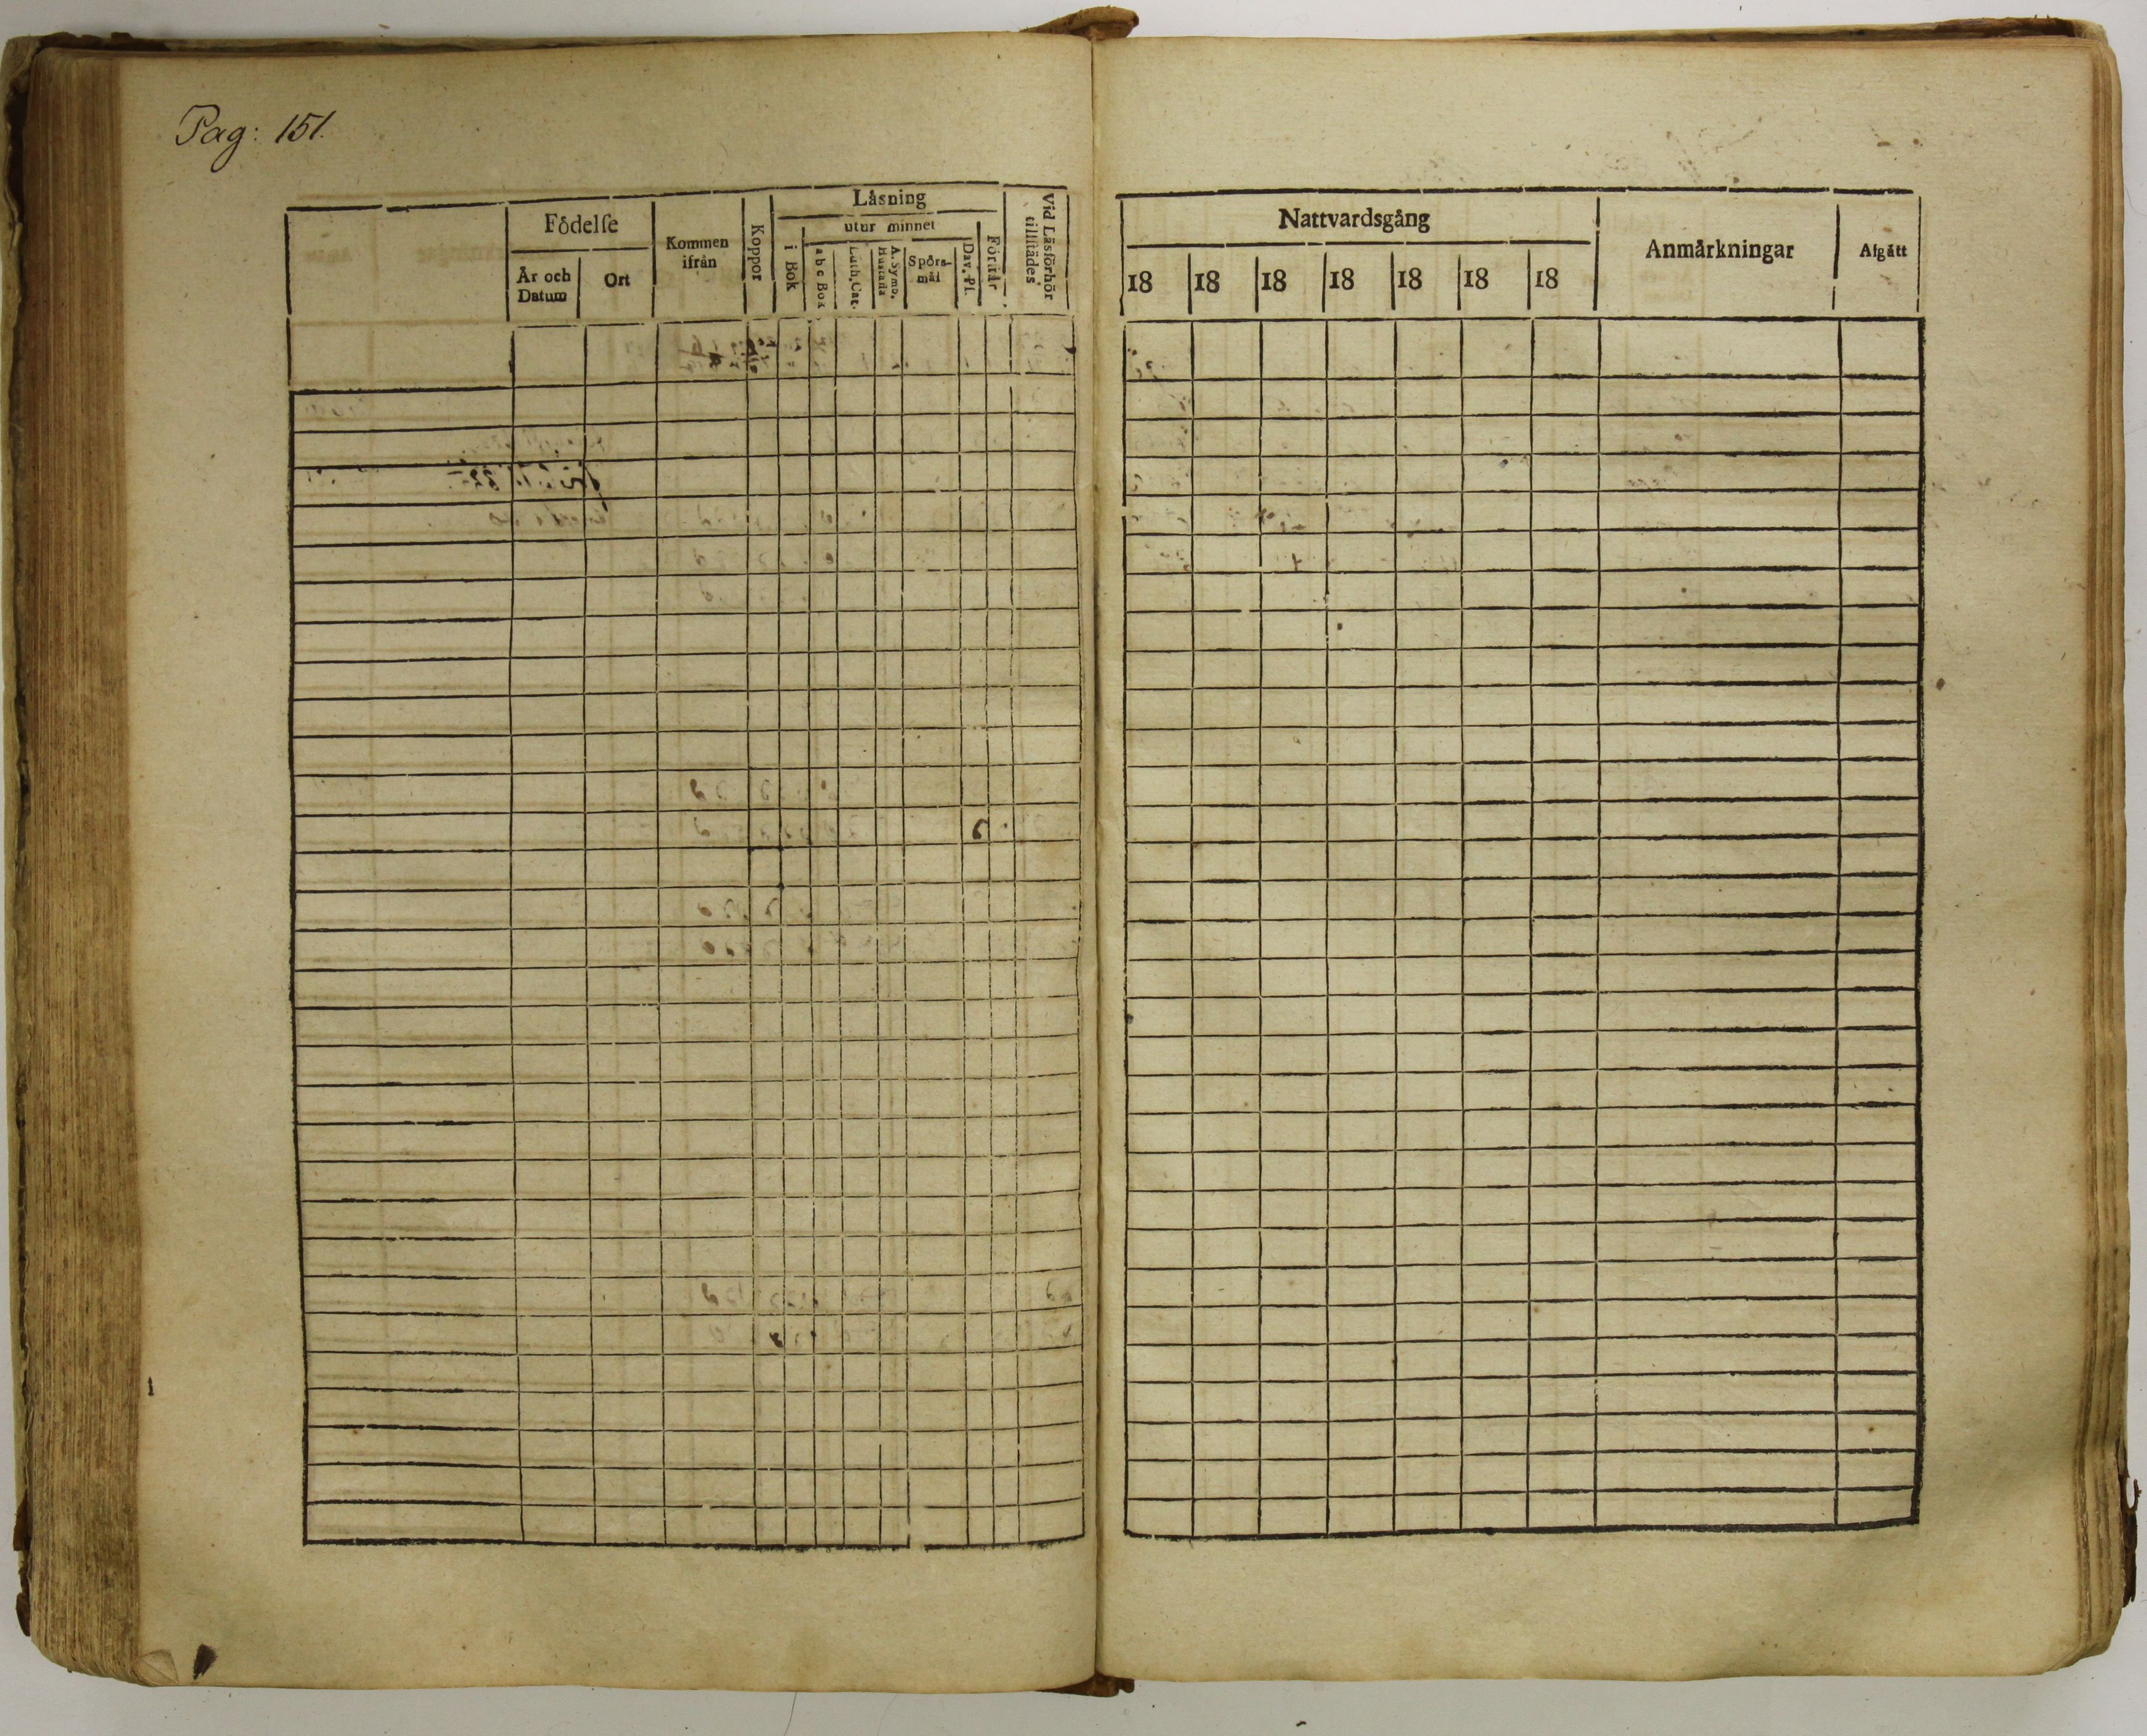 Pag: 151.
Läsning
Födelſe
Kommen
ifrån
Koppor
utur minnet
Vid Läsförhör
tillſtådes
År och
Datum
Ort
i Bok
a b c Bok
Luth. Cat.
A. Symb.
Huſtafla
Spörs-
mål
Dav. Pſ.
Förſtår
Nattvardsgång
Anmärkningar
Afgått
18 18 18 18 18 18 18